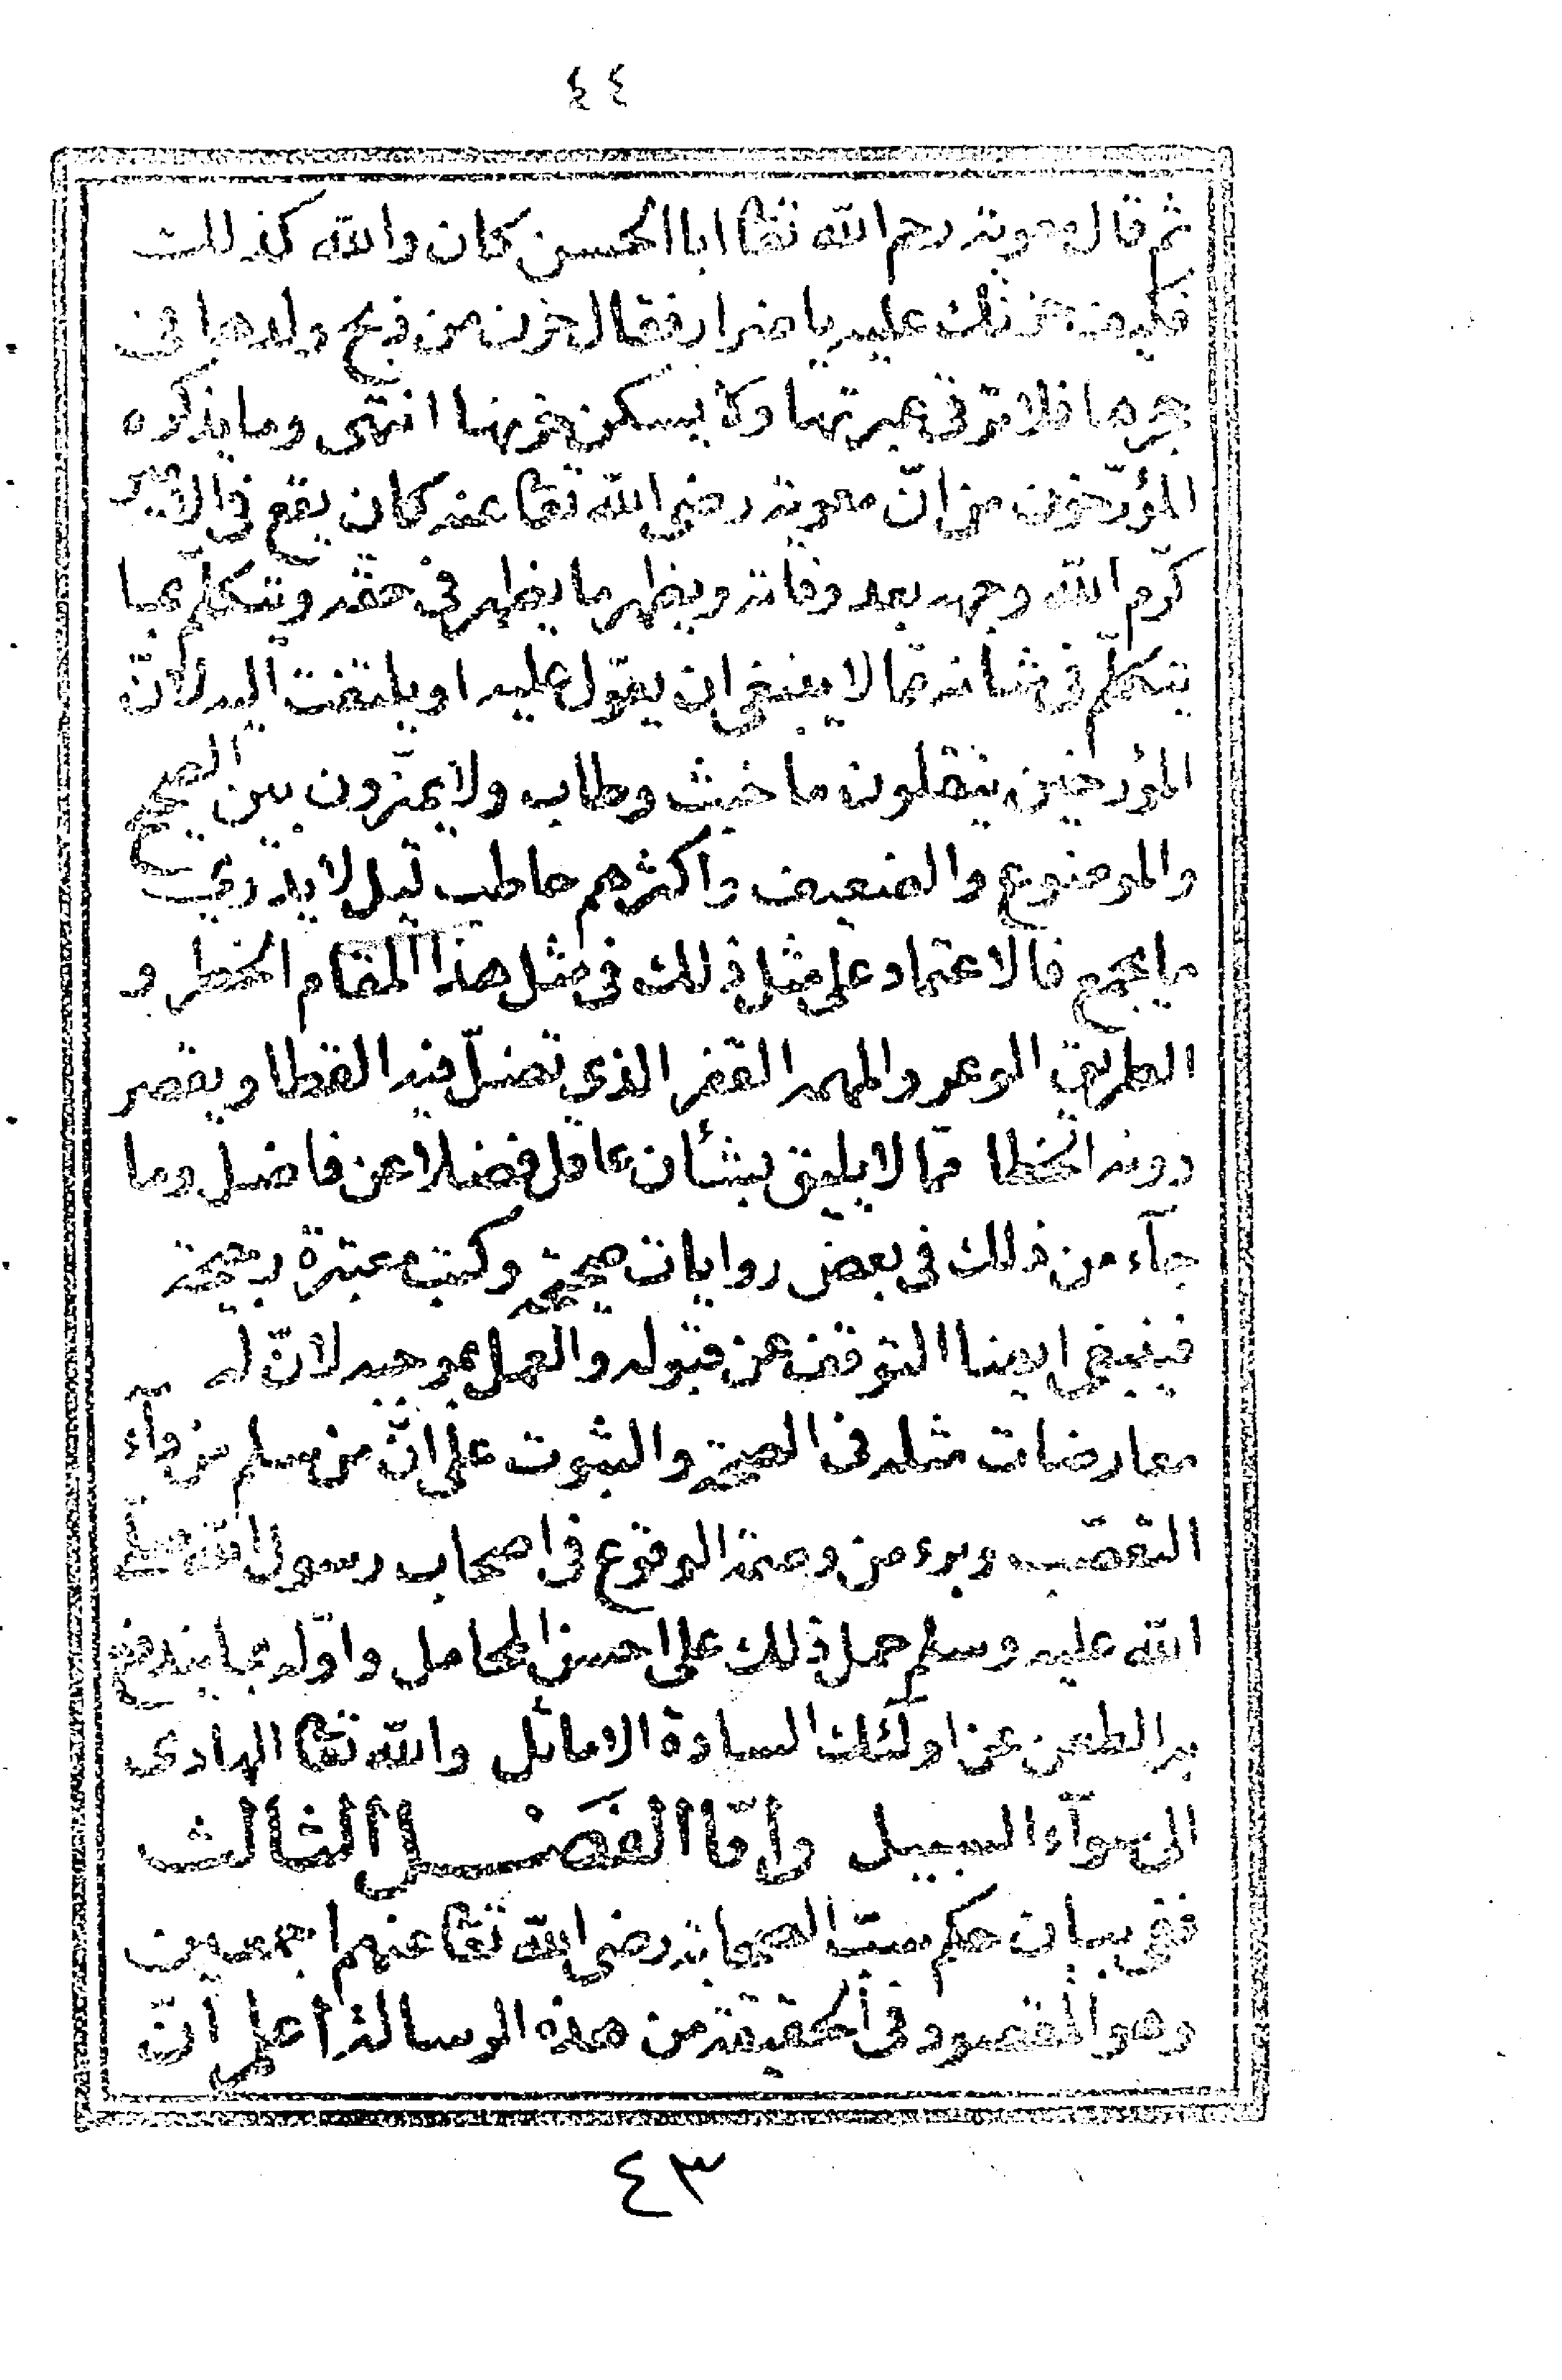 ٤٤
ثم قال معوية رحم الله تعا ابا الحسن كان والله كذلك
فكيف حزنك عليه يا ضرار فقال حزن من ذبح ولدها في
حجرها فلا ترقى عبرتها ولا يسكن حزنها انتهى وما يذكره
المؤرّخون من انّ معوية رضى الله تعا عنه كان يقع في الامير
كرّم الله وجهه بعد وفاته ويظهر ما يظهر في حقّه ويتكلّم بما
يتكلّم في شأنه ممّا لا ينبغي ان يعوّل عليه او يلتفت اليه لانّ
المؤرخين ينقلون ما خبث وطاب ولا يميّزون بين الصحيح
والموضوع والضعيف واكثرهم حاطب ليل لا يدري
ما يجمع فالاعتماد على مثل ذلك في مثل هذا المقام الخطر و
الطريق الوعر والمهمه القفر الذى تضلّ فيه القطا ويقصر
دونه الخطا ممّا لا يليق بشأن عاقل فضلا عن فاضل وما
جآء من ذلك في بعض روايات صحيحة وكتب معتبرة رجيحة
فينبغي ايضا التوقف عن قبوله والعمل بموجبه لانّ له
معارضات مثله في الصحة والثبوت على انّ من سلم من دآء
التعصّب وبرء من وصمة الوقوع في اصحاب رسول الله صلّى
الله عليه وسلم حمل ذلك على احسن المحامل واوّله بما يندفع
به الطعن عن اولئك السادة الاماثل والله تعا الهادى
الى سوآء السبيل وامّا الفَصْـــل الثالث
ففي بيان حكم سبّ الصحابة رضى الله تعا عنهم اجمعين
وهو المقصود في الحقيقة من هذه الرسالة اعلم انّ
٤٣